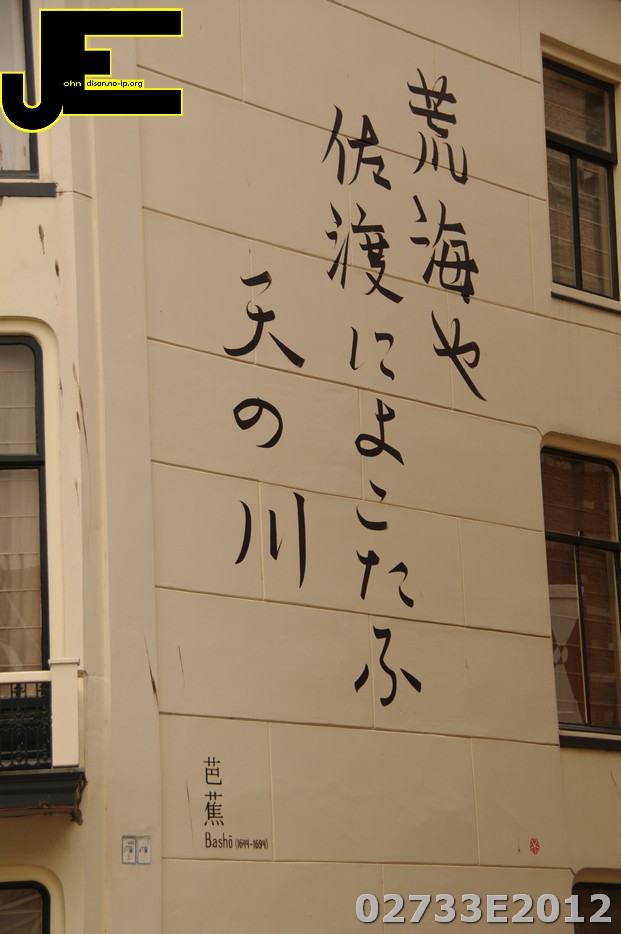 JE
ohn dison.no-ip.org
荒海や
佐渡によこたふ
天の川
芭蕉
Bashō (1644-1694)
02733E2012